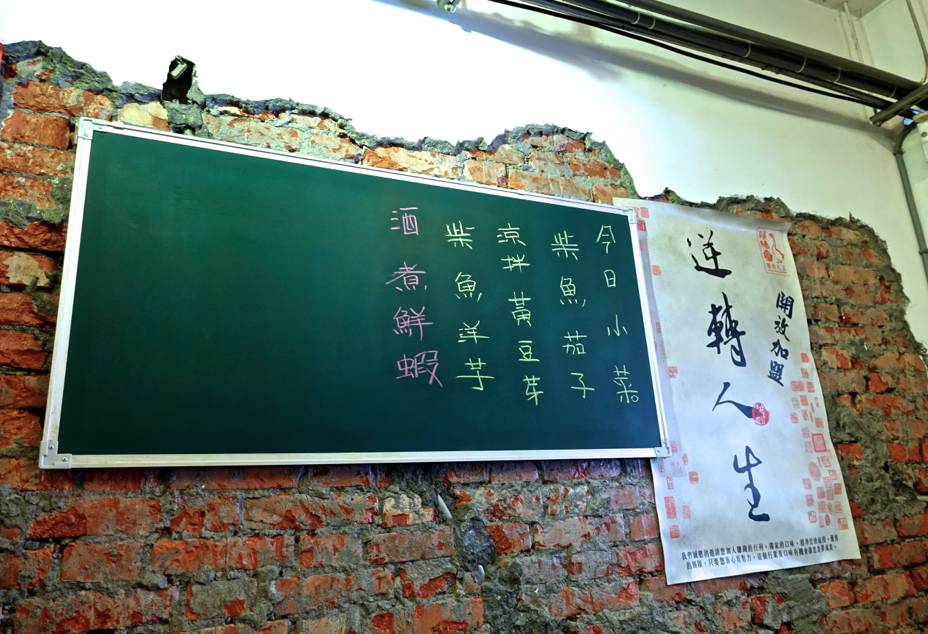 今日小菜。
柴魚茄子
涼拌黃豆芽
柴魚洋芋
酒煮鮮蝦
開放加盟
逆轉人生